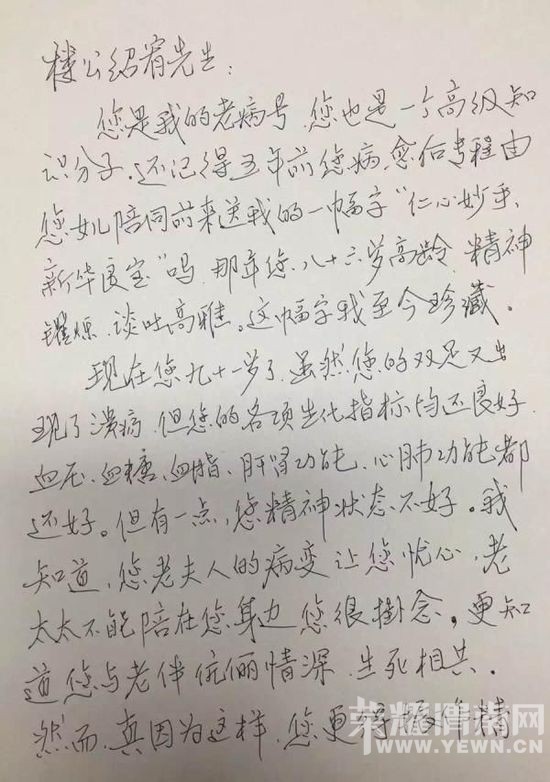 楼公绍宥先生:
您是我的老病号,您也是一个高级知
识分子。还记得五年前您病愈后专程由
您女儿陪同前来送我的一幅字"仁心妙手,
新华医宝"吗,那年您八十六岁高龄,精神
矍烁,谈吐高雅。这幅字我至今珍藏。
现在您九十一岁了,虽然您的双足又出
现了溃疡,但您的各项生化指标均还良好.
血压、血糖、血脂、肝肾功能、心肺功能都
还好。但有一点,您精神状态不好。我
知道,您老夫人的病变让您忧心,老
太太不能陪在您身边您很掛念。更知
道您与老伴伉俪情深,生死相共.
然而,真因为这样,您更得振作精
荣耀渭南网
WWW.YEWN.CN